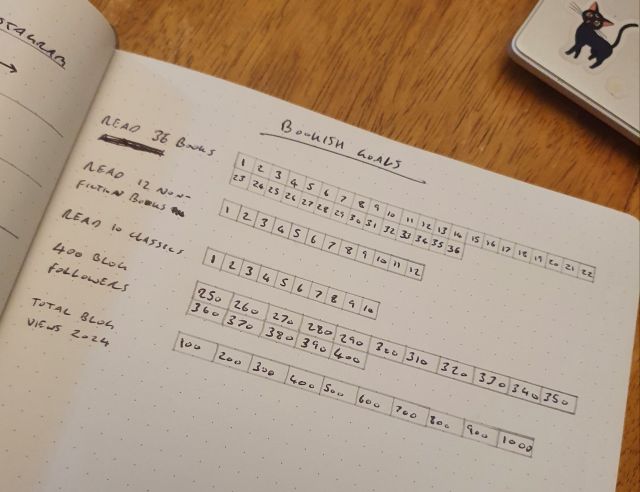 STAGRAM
BOOKISH GOALS
READ 36 BOOKS
1 2 3 4 5 6 7 8 9 10 11 12 13 14 15 16 17 18 19 20 21 22
23 24 25 26 27 28 29 30 31 32 33 34 35 36
READ 12 NON-
FICTION BOOKS
1 2 3 4 5 6 7 8 9 10 11 12
READ 10 CLASSICS
1 2 3 4 5 6 7 8 9 10
400 BLOG
FOLLOWERS
250 260 270 280 290 300 310 320 330 340 350
360 370 380 390 400
TOTAL BLOG
VIEWS 2024
100 200 300 400 500 600 700 800 900 1000